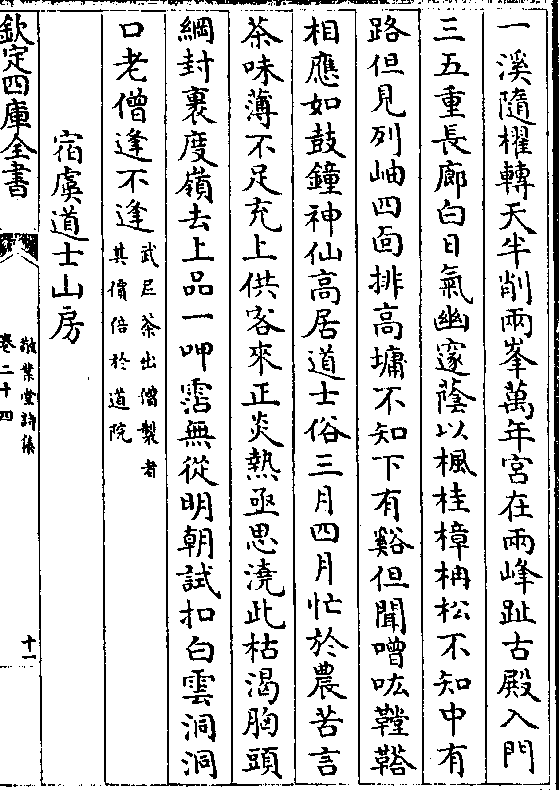 一溪隨櫂轉天半削兩峯萬年宮在兩峰趾古殿入門
三五重長廊白日氣幽邃蔭以楓桂樟枏松不知中有
路但見列岫四面排高墉不知下有谿但聞噌吰鞺鞳
相應如鼓鐘神仙高居道士俗三月四月忙於農苦言
茶味薄不足充上供客來正炎熱亟思澆此枯渴胸頭
綱封裹度嶺去上品一呷霑無從明朝試扣白雲洞洞
口老僧逢不逢武𡰥茶出僧製者
其價倍於道院
宿虞道士山房
欽定四庫全書
敬業堂詩集
卷二十四
十一